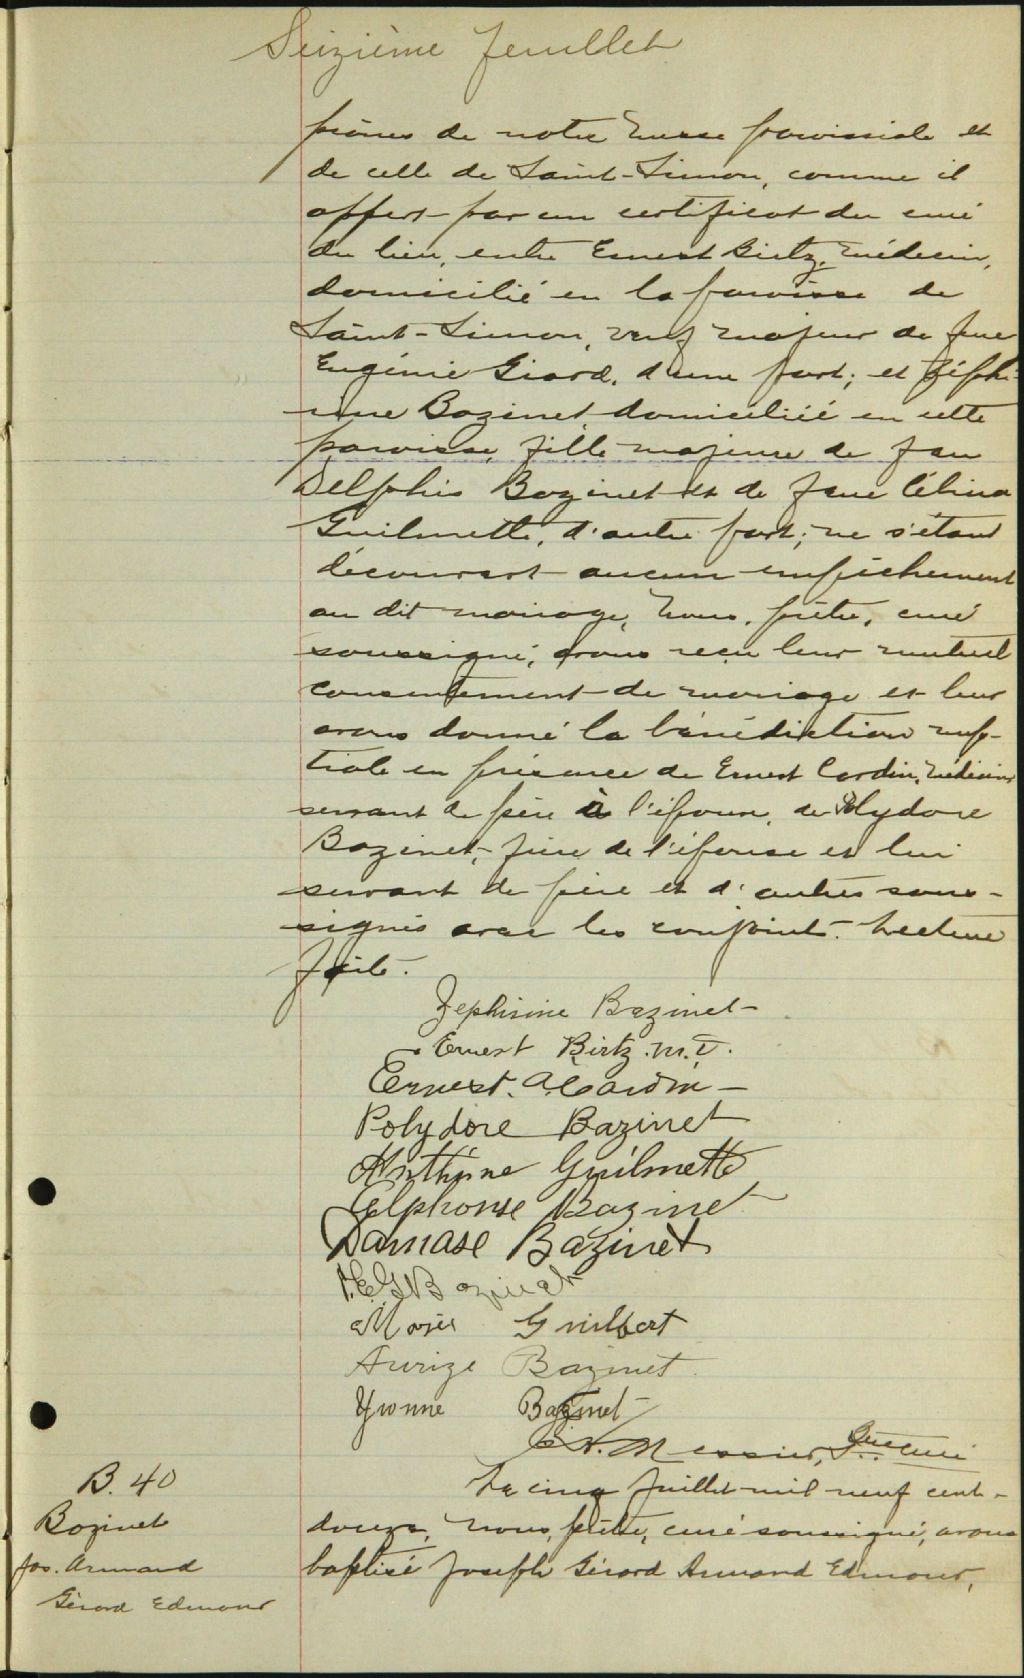 Seizième feuillet
prônes de notre messe paroissiale et
de celle de Saint-Simon, comme il
appert par un certificat du curé
du lieu, entre Ernest Birtz, médecin,
domicilié en la paroisse de
Saint-Simon, veuf majeur de feue
Eugénie Giard, d'une part; et Zéphi-
rine Bazinet domiciliée en cette
paroisse, fille majeure de feu
Delphis Bazinet et de feue Célina
Guilmette, d'autre part; ne s'étant
découvert aucun empêchement
au dit mariage, nous, prêtre, curé
soussigné, avons reçu leur mutuel
consentement de mariage et leur
avons donné la bénédiction nup-
tiale en présence de Ernest Cardin, médecin
servant de père à l'époux, de Polydore
Bazinet, frère de l'épouse et lui
servant de père et d'autres sous-
signés avec les conjoints. Lecture
faite.
Zephirine Bazinet
Ernest Birtz. M.D.
Ernest. A. Cardin
Polydore Bazinet
Anthime Guilmette
Alphonse Bazinet
Damase Bazinet
Bazinet
Guilbert
Bazinet
Yvonne Bazinet
Messier, Ptre curé
B. 40
Bazinet
Jos. Armand
Gérard Edmour
Le cinq Juillet mil neuf cent-
douze, nous, prêtre, curé soussigné, avons
baptisé Joseph Gérard Armand Edmour,